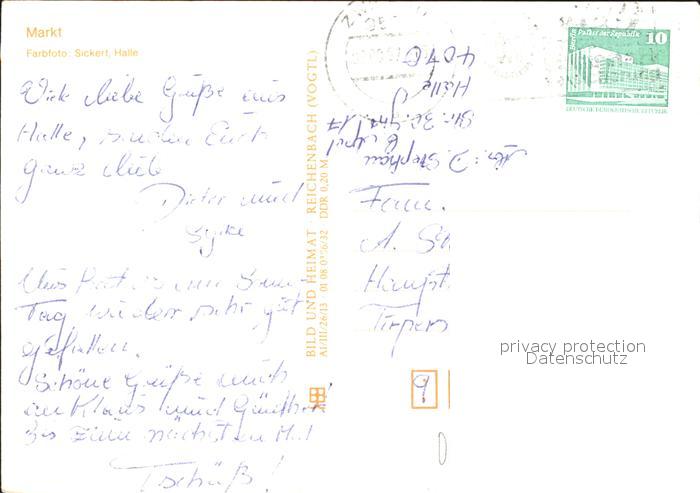 Markt
Farbfoto: Sickert, Halle
Viele liebe Grüße aus
Halle, senden Euch
ganz lieb
Dieter und
Silke
Uns hat es am Sonn-
Tag wieder sehr gut
gefallen.
Schöne Grüße auch
an Klaus und Günther!
Bis zum nächsten M.!
Tschüß!
BILD UND HEIMAT REICHENBACH (VOGTL)
A1/III/26/13 01 08 0 /32 DDR 0,20 M
Abs.: D. Stephan
Halle
4070
Berlin Palast der Republik 10
DEUTSCHE DEMOKRATISCHE REPUBLIK
Fam.
A. St
Hauptst
Tirpers
9
privacy protection
Datenschutz